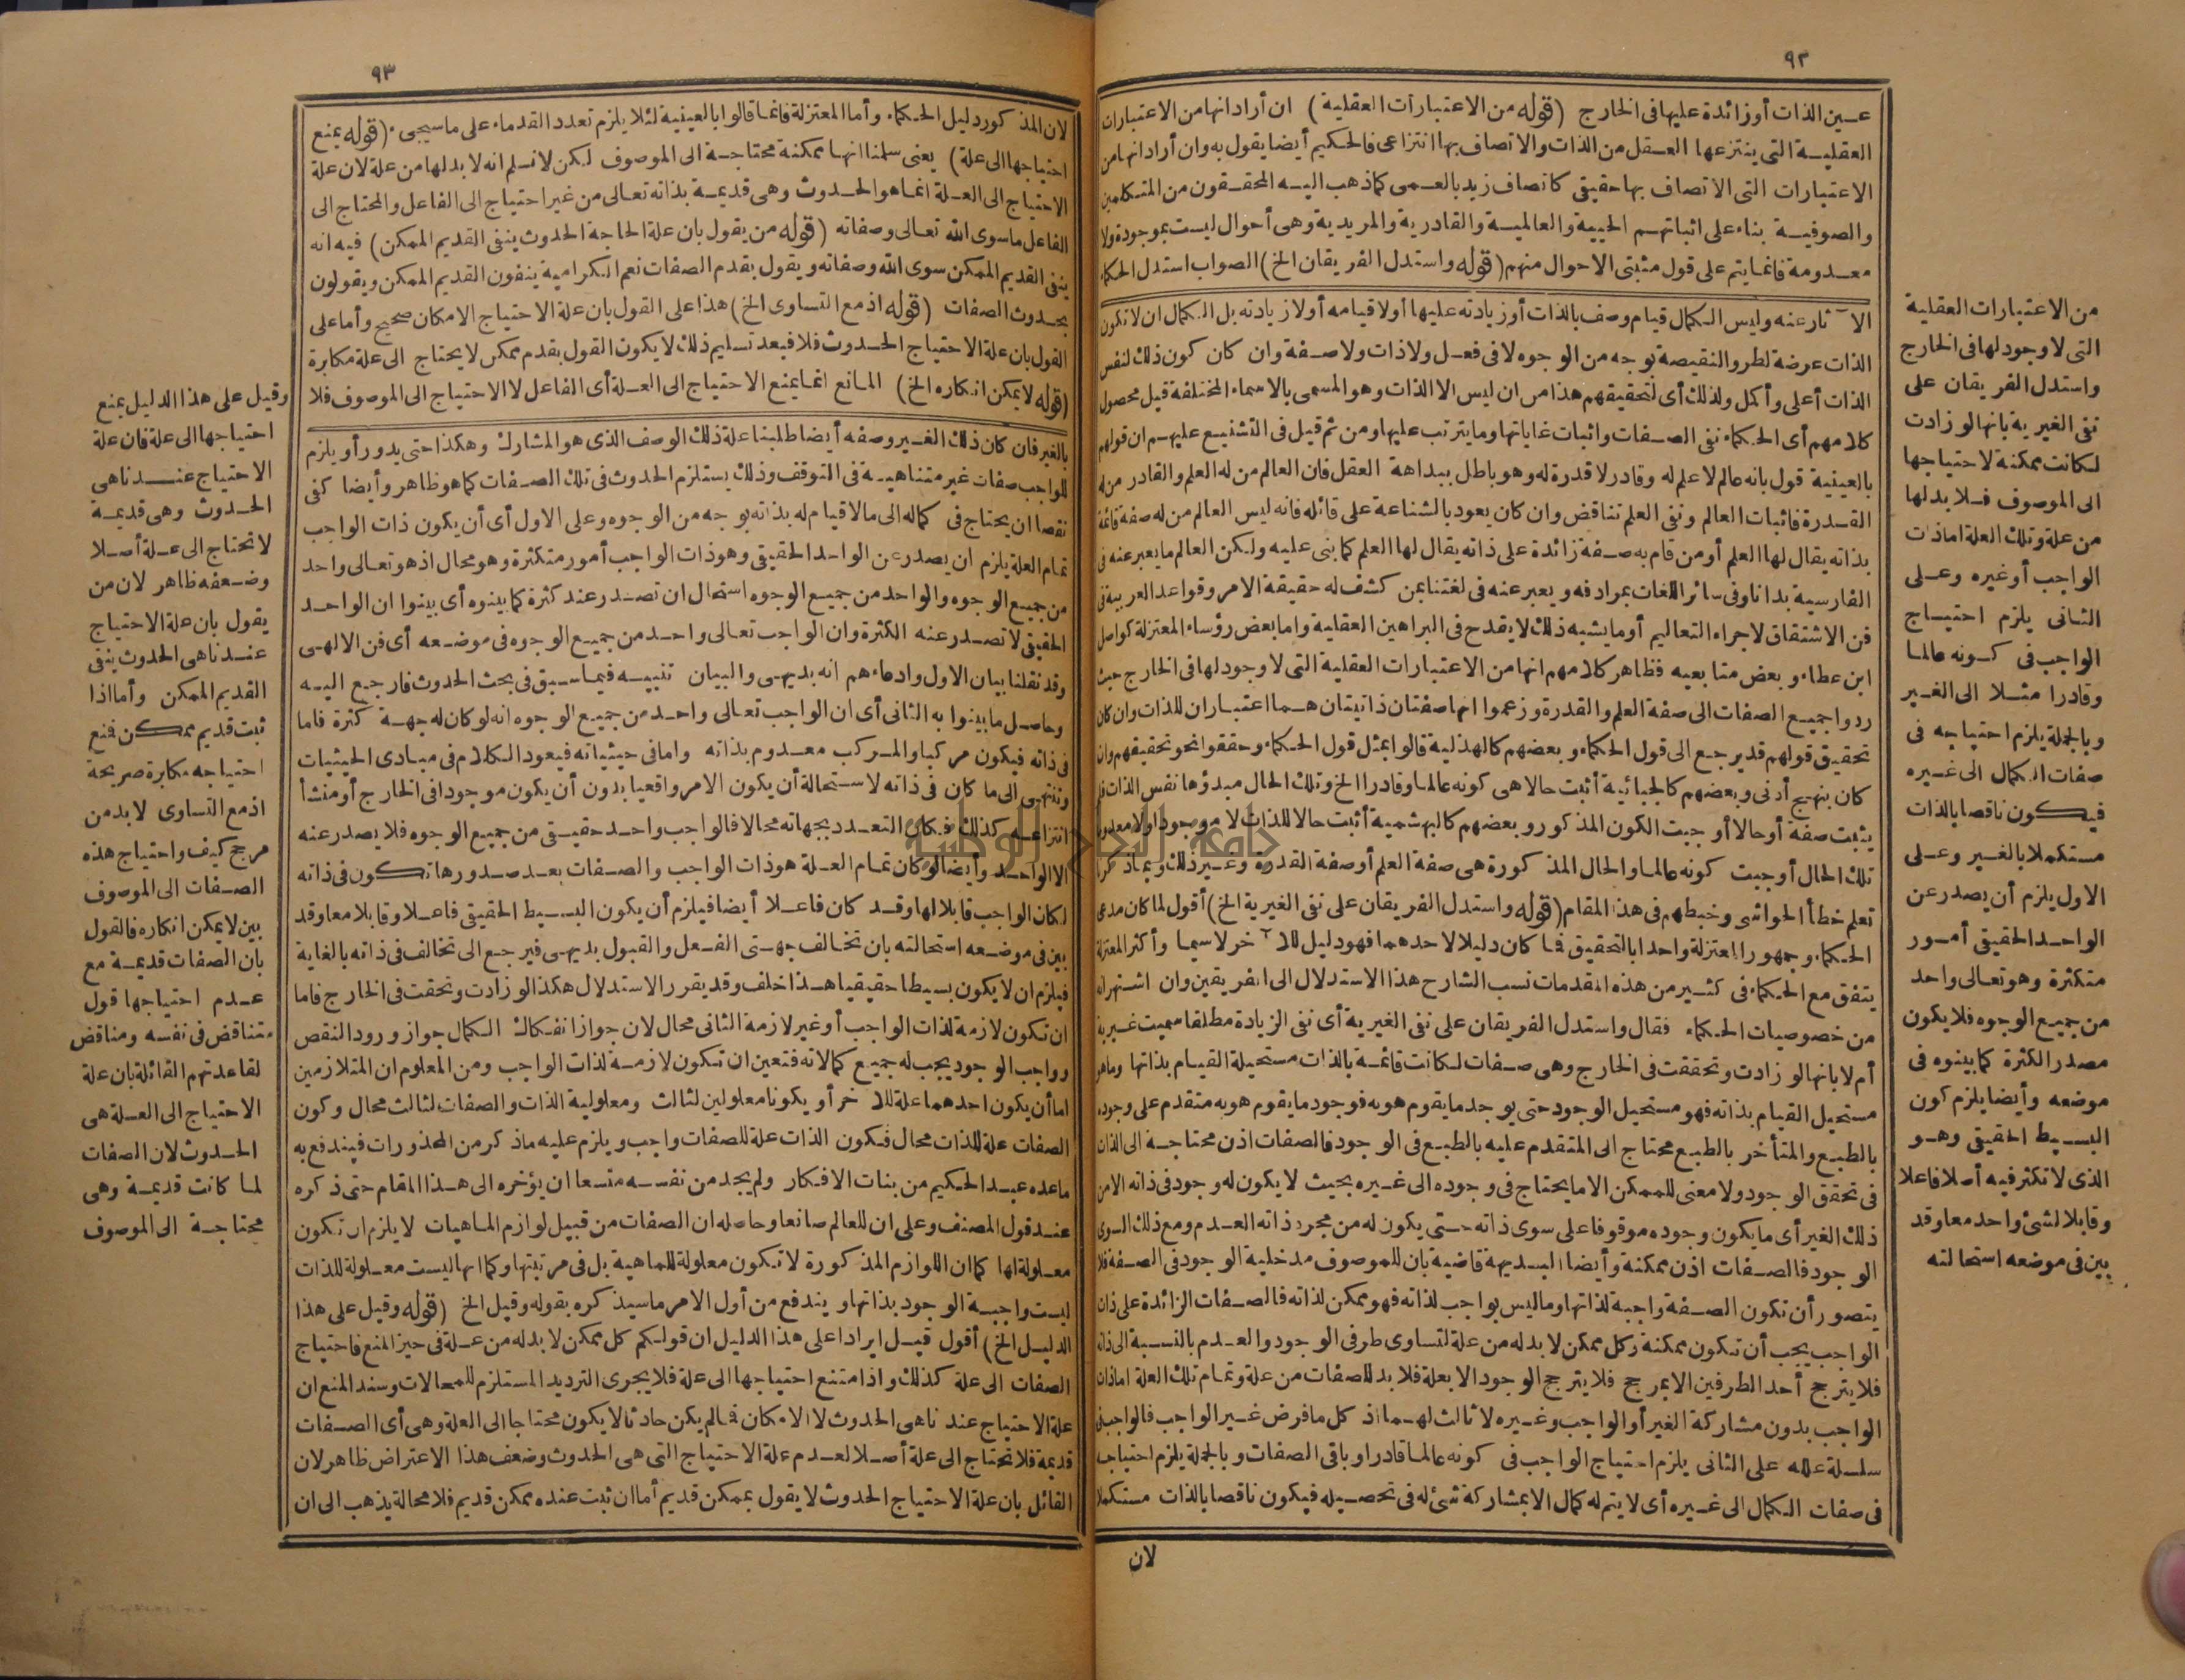 ٩٢
عين الذات أو زائدة عليها فى الخارج (قوله من الاعتبارات العقلية) ان أراد انها من الاعتبارات
العقلية التى ينتزعها العقل من الذات والاتصاف بها انتزاعى فالحكيم أيضا يقول به وان أراد انها من
الاعتبارات التى الاتصاف بها حقيقى كاتصاف زيد بالعمى كما ذهب اليه المحققون من المتكلمين
والصوفية بناء على اثباتهم الحيية والعالمية والقادرية والمريدية وهى أحوال ليست بموجودة ولا
معدومة فانما يتم على قول مثبتى الاحوال منهم (قوله واستدل الفريقان الخ) الصواب استدل الحكماء
الآثار عنه وليس الكمال قيام وصف بالذات أو زيادته عليها أولا قيامه أولا زيادته بل الكمال ان لا تكون
الذات عرضة لطرو النقيصة بوجه من الوجوه لا فى فعل ولا ذات ولا صفة وان كان كون ذلك لنفس
الذات أعلى وأكمل ولذلك أى لتحقيقهم هذا من ان ليس الا الذات وهو المسمى بالاسماء المختلفة قيل محصول
كلامهم أى الحكماء نفى الصفات واثبات غاياتها وما يترتب عليها ومن ثم قيل فى التشنيع عليهم ان قولهم
بالعينية قول بانه عالم لا علم له وقادر لا قدرة له وهو باطل ببداهة العقل فان العالم من له العلم والقادر من له
القدرة فاثبات العالم ونفى العلم تناقض وان كان يعود بالشناعة على قائله فانه ليس العالم من له صفة قائمة
بذاته يقال لها العلم أو من قام به صفة زائدة على ذاته يقال لها العلم كما بنى عليه ولكن العالم ما يعبر عنه فى
الفارسية بدانا وفى سائر اللغات بمرادفه ويعبر عنه فى لغتنا بمن كشف له حقيقة الامر وقواعد العربية فى
فن الاشتقاق لاجراء التعاليم أو ما يشبه ذلك لا يقدح فى البراهين العقلية واما بعض رؤساء المعتزلة كواصل
ابن عطاء وبعض متابعيه فظاهر كلامهم انها من الاعتبارات العقلية التى لا وجود لها فى الخارج حيث
ردوا جميع الصفات الى صفة العلم والقدرة وزعموا انها صفتان ذاتيتان هما اعتباران للذات وان كان
تحقيق قولهم قد يرجع الى قول الحكماء وبعضهم كالهذلية قالوا بمثل قول الحكماء وحققوا نحو تحقيقهم وان
كان بنهج أدنى وبعضهم كالجبائية أثبت حالا هى كونه عالما وقادرا الخ وتلك الحال مبدؤها نفس الذات فلم
يثبت صفة أو حالا أوجبت الكون المذكور وبعضهم كالبهشمية أثبت حالا للذات لا موجودا ولا معدوما
تلك الحال أوجبت كونه عالما والحال المذكورة هى صفة العلم أو صفة القدرة وغير ذلك وبما ذكرنا
تعلم خطأ الحواشى وخبطهم فى هذا المقام (قوله واستدل الفريقان على نفى الغيرية الخ) أقول لما كان مدعى
الحكماء وجمهور المعتزلة واحدا بالتحقيق فما كان دليلا لاحدهما فهو دليل للآخر لاسيما وأكثر المعتزلة
يتفق مع الحكماء فى كثير من هذه المقدمات نسب الشارح هذا الاستدلال الى الفريقين وان اشتهر انه
من خصوصيات الحكماء فقال واستدل الفريقان على نفى الغيرية أى نفى الزيادة مطلقا سميت غيرية
أم لا بانها لو زادت وتحققت فى الخارج وهى صفات لكانت قائمة بالذات مستحيلة القيام بذاتها وما هو
مستحيل القيام بذاته فهو مستحيل الوجود حتى يوجد ما يقوم هو به فوجود ما يقوم هو به متقدم على وجوده
بالطبع والمتأخر بالطبع محتاج الى المتقدم عليه بالطبع فى الوجود فالصفات اذن محتاجة الى الذات
فى تحقق الوجود ولا معنى للممكن الا ما يحتاج فى وجوده الى غيره بحيث لا يكون له وجود فى ذاته الا من
ذلك الغير أى ما يكون وجوده موقوفا على سوى ذاته حتى يكون له من مجرد ذاته العدم ومع ذلك السوى
الوجود فالصفات اذن ممكنة وأيضا البديهة قاضية بان للموصوف مدخلية الوجود فى الصفة فلا
يتصور أن تكون الصفة واجبة لذاتها وما ليس بواجب لذاته فهو ممكن لذاته فالصفات الزائدة على ذات
الواجب يجب أن تكون ممكنة وكل ممكن لا بد له من علة لتساوى طرفى الوجود والعدم بالنسبة الى ذاته
فلا يترجح أحد الطرفين الا بمرجح فلا يترجح الوجود الا بعلة فلا بد للصفات من علة وتمام تلك العلة اما ذات
الواجب بدون مشاركة الغير أو الواجب وغيره لا ثالث لهما اذ كل ما فرض غير الواجب فالواجب فى
سلسلة علله على الثانى يلزم احتياج الواجب فى كونه عالما قادرا وباقى الصفات وبالجملة يلزم احتياجه
فى صفات الكمال الى غيره أى لا يتم له كمال الا بمشاركة شئ له فى تحصيله فيكون ناقصا بالذات مستكملا
لان
من الاعتبارات العقلية
التى لا وجود لها فى الخارج
واستدل الفريقان على
نفى الغيرية بانها لو زادت
لكانت ممكنة لاحتياجها
الى الموصوف فلا بد لها
من علة وتلك العلة اما ذات
الواجب أو غيره وعلى
الثانى يلزم احتياج
الواجب فى كونه عالما
وقادرا مثلا الى الغير
وبالجملة يلزم احتياجه فى
صفات الكمال الى غيره
فيكون ناقصا بالذات
مستكملا بالغير وعلى
الاول يلزم أن يصدر عن
الواحد الحقيقى أمور
متكثرة وهو تعالى واحد
من جميع الوجوه فلا يكون
مصدر الكثرة كما بينوه فى
موضعه وأيضا يلزم كون
البسيط الحقيقى وهو
الذى لا تكثر فيه أصلا فاعلا
وقابلا لشئ واحد معا وقد
بين فى موضعه استحالته
٩٣
لان المذكور دليل الحكماء وأما المعتزلة فانما قالوا بالعينية لئلا يلزم تعدد القدماء على ما سيجىء (قوله بمنع
احتياجها الى علة) يعنى سلمنا انها ممكنة محتاجة الى الموصوف لكن لا نسلم انه لا بد لها من علة لان علة
الاحتياج الى العلة انما هو الحدوث وهى قديمة بذاته تعالى من غير احتياج الى الفاعل والمحتاج الى
الفاعل ما سوى الله تعالى وصفاته (قوله من يقول بان علة الحاجة الحدوث ينفى القديم الممكن) فيه انه
ينفى القديم الممكن سوى الله وصفاته ويقول بقدم الصفات نعم الكرامية ينفون القديم الممكن ويقولون
بحدوث الصفات (قوله اذ مع التساوى الخ) هذا على القول بان علة الاحتياج الامكان صحيح وأما على
القول بان علة الاحتياج الحدوث فلا فبعد تسليم ذلك لا يكون القول بقدم ممكن لا يحتاج الى علة مكابرة
(قوله لا يمكن انكاره الخ) المانع انما يمنع الاحتياج الى العلة أى الفاعل لا الاحتياج الى الموصوف فلا
بالغير فان كان ذلك الغير وصفه أيضا طلبنا علة ذلك الوصف الذى هو المشارك وهكذا حتى يدور أو يلزم
للواجب صفات غير متناهية فى التوقف وذلك يستلزم الحدوث فى تلك الصفات كما هو ظاهر وأيضا كفى
نقصا ان يحتاج فى كماله الى ما لا قيام له بذاته بوجه من الوجوه وعلى الاول أى أن يكون ذات الواجب
تمام العلة يلزم ان يصدر عن الواحد الحقيقى وهو ذات الواجب أمور متكثرة وهو محال اذ هو تعالى واحد
من جميع الوجوه والواحد من جميع الوجوه استحال ان تصدر عند كثرة كما بينوه أى بينوا ان الواحد
الحقيقى لا تصدر عنه الكثرة وان الواجب تعالى واحد من جميع الوجوه فى موضعه أى فن الالهى
وقد نقلنا بيان الاول وادعاءهم انه بديهى والبيان تنبيه فيما سبق فى بحث الحدوث فارجع اليه
وحاصل ما بينوا به الثانى أى ان الواجب تعالى واحد من جميع الوجوه انه لو كان له جهة كثرة فاما
فى ذاته فيكون مركبا والمركب معدوم بذاته واما فى حيثياته فيعود الكلام فى مبادى الحيثيات
وتنتهى الى ما كان فى ذاته لاستحالة أن يكون الامر واقعيا بدون أن يكون موجودا فى الخارج أو منشأ
انتزاعه كذلك فكان التعدد بجهاته محالا فالواجب واحد حقيقى من جميع الوجوه فلا يصدر عنه
الا الواحد وأيضا لو كان تمام العلة هو ذات الواجب والصفات بعد صدورها تكون فى ذاته
لكان الواجب قابلا لها وقد كان فاعلا أيضا فيلزم أن يكون البسيط الحقيقى فاعلا وقابلا معا وقد
بين فى موضعه استحالته بان تخالف جهتى الفعل والقبول بديهى فيرجع الى تخالف فى ذاته بالغاية
فيلزم ان لا يكون بسيطا حقيقيا هذا خلف وقد يقرر الاستدلال هكذا لو زادت وتحقت فى الخارج فاما
ان تكون لازمة لذات الواجب أو غير لازمة الثانى محال لان جواز انفكاك الكمال جواز ورود النقص
وواجب الوجود يجب له جميع كمالاته فتعين ان تكون لازمة لذات الواجب ومن المعلوم ان المتلازمين
اما أن يكون احدهما علة للآخر أو يكونا معلولين لثالث ومعلولية الذات والصفات لثالث محال وكون
الصفات علة للذات محال فتكون الذات علة للصفات واجب ويلزم عليه ما ذكر من المحذورات فيندفع به
ماعده عبد الحكيم من بنات الافكار ولم يجد من نفسه متسعا ان يؤخره الى هذا المقام حتى ذكره
عند قول المصنف وعلى ان للعالم صانعا وحاصله ان الصفات من قبيل لوازم الماهيات لا يلزم ان تكون
معلولة لها كما ان اللوازم المذكورة لا تكون معلولة للماهية بل فى مرتبتها وكما انها ليست معلولة للذات
ليست واجبة الوجود بذاتها ويندفع من أول الامر ما سيذكره بقوله وقيل الخ (قوله وقيل على هذا
الدليل الخ) أقول قيل ايرادا على هذا الدليل ان قولكم كل ممكن لا بد له من علة فى حيز المنع فاحتياج
الصفات الى علة كذلك واذا متنع احتياجها الى علة فلا يجرى الترديد المستلزم للمحالات وسند المنع ان
علة الاحتياج عندناهى الحدوث لا الامكان فما لم يكن حادثا لا يكون محتاجا الى العلة وهى أى الصفات
قديمة فلا تحتاج الى علة أصلا لعدم علة الاحتياج التى هى الحدوث وضعف هذا الاعتراض ظاهر لان
القائل بان علة الاحتياج الحدوث لا يقول بممكن قديم أما ان ثبت عنده ممكن قديم فلا محالة يذهب الى ان
وقيل على هذا الدليل بمنع
احتياجها الى علة فان علة
الاحتياج عندناهى
الحدوث وهى قديمة
لا تحتاج الى علة أصلا
وضعفه ظاهر لان من
يقول بان علة الاحتياج
عندناهى الحدوث ينفى
القديم الممكن وأما اذا
ثبت قديم ممكن فمنع
احتياجه مكابرة صريحة
اذ مع التساوى لا بد من
مرجح كيف واحتياج هذه
الصفات الى الموصوف
بين لا يمكن انكاره فالقول
بان الصفات قديمة مع
عدم احتياجها قول
متناقض فى نفسه ومناقض
لقاعدتهم القائلة بان علة
الاحتياج الى العلة هى
الحدوث لان الصفات
لما كانت قديمة وهى
محتاجة الى الموصوف
جامعة النجاح الوطنية